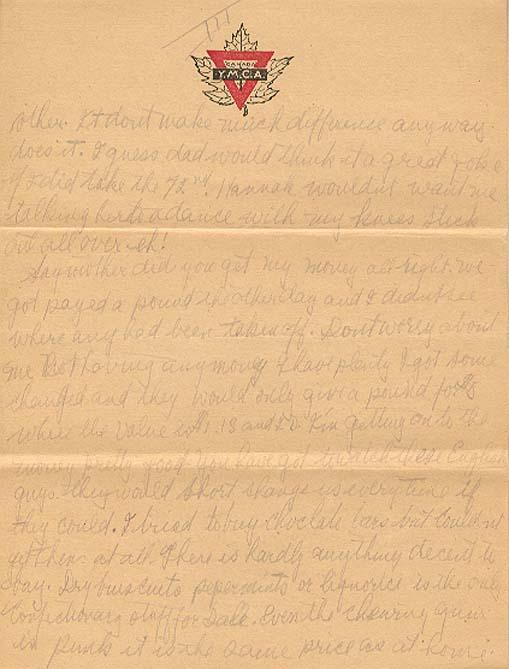 III
CANADA
Y.M.C.A.
other. It dont make much difference anyway
does it. I guess dad would think it a great joke
if I did take the 72nd. Hannah wouldnt want me
talking her to a dance with my knees stuck
out all over eh!
Say mother did you get my money all right. we
got payed a pound the other day and I didnt see
where any had been taken off. Dont worry about
me not having any money I have plenty I got some
changed and they would only give a pound for
where the value is 18 and 50. I'm getting on to the
money pretty good you have got to watch these English
guys. they would short change us every time if
they could. I tried to buy choclate bars but couldnt
get them at all. There is hardly anything decent to
buy. Dry buiscuits peperments or liquorice is the only
confectionary stuff for sale. Even the chewing gum
is punk it is the same price as at home.